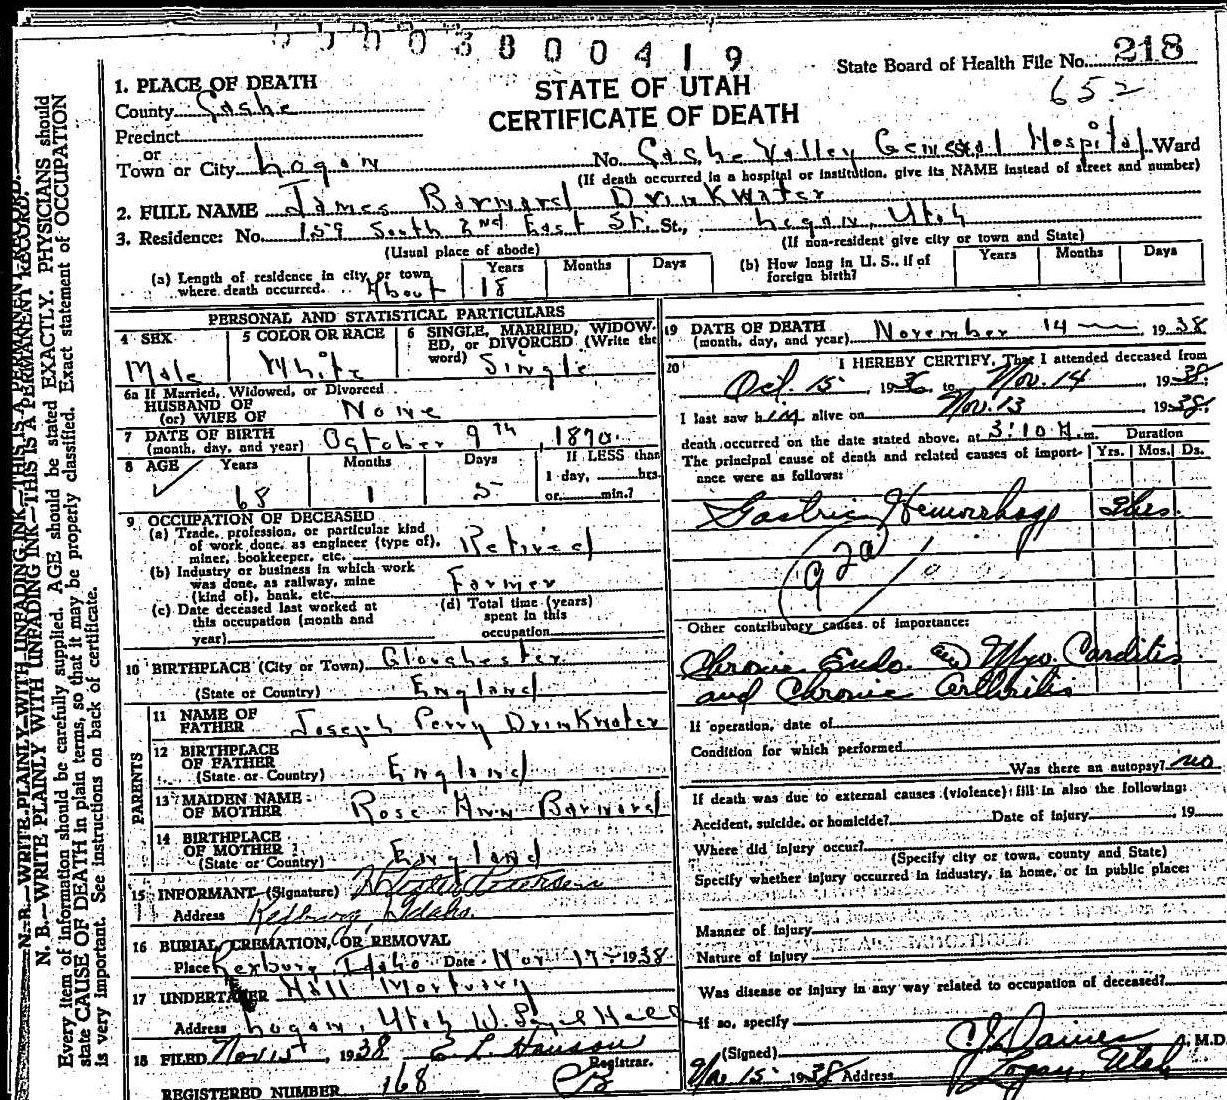 0 0 0 0 3 8 0 0 4 1 9
State Board of Health File No. 218
652
STATE OF UTAH
CERTIFICATE OF DEATH
1. PLACE OF DEATH
County Cache
Precinct
or
Town or City Logan No. Cache Valley General Hospital Ward
(If death occurred in a hospital or institution, give its NAME instead of street and number)
2. FULL NAME James Barnard Drinkwater
3. Residence: No. 159 South 2nd East St. St., Logan, Utah
(Usual place of abode) (If non-resident give city or town and State)
(a) Length of residence in city or town where death occurred. About 18 Years Months Days
(b) How long in U. S., if of foreign birth? Years Months Days
PERSONAL AND STATISTICAL PARTICULARS
4 SEX Male
5 COLOR OR RACE White
6 SINGLE, MARRIED, WIDOWED, or DIVORCED (Write the word) Single
6a If Married, Widowed, or Divorced
HUSBAND OF
(or) WIFE OF None
7 DATE OF BIRTH
(month, day, and year) October 9th, 1870
8 AGE Years 68 Months 1 Days 5 If LESS than
1 day, hrs.
or min.?
9 OCCUPATION OF DECEASED
(a) Trade, profession, or particular kind
of work done, as engineer (type of),
miner, bookkeeper, etc. Retired
(b) Industry or business in which work
was done, as railway, mine
(kind of), bank, etc. Farmer
(c) Date deceased last worked at
this occupation (month and
year)
(d) Total time (years)
spent in this
occupation
10 BIRTHPLACE (City or Town) Glouchester
(State or Country) England
PARENTS
11 NAME OF
FATHER Joseph Perry Drinkwater
12 BIRTHPLACE
OF FATHER
(State or Country) England
13 MAIDEN NAME
OF MOTHER Rose Ann Barnard
14 BIRTHPLACE
OF MOTHER
(State or Country) England
15 INFORMANT (Signature) Petersen
Address Rexburg, Idaho.
16 BURIAL, CREMATION, OR REMOVAL
Place Rexburg, Idaho Date Nov 17 - 1938
17 UNDERTAKER Hall Mortuary
Address Logan, Utah W. Loyal Hall
18 FILED Nov 15, 1938 E L Hanson
Registrar.
REGISTERED NUMBER 168
19 DATE OF DEATH
(month, day, and year) November 14 1938
20 I HEREBY CERTIFY, That I attended deceased from
Oct. 15 1936 to Nov. 14, 1938
I last saw him alive on Nov. 13 1938
death occurred on the date stated above, at 3:10 A. m.
The principal cause of death and related causes of importance were as follows:
Duration
Yrs. Mos. Ds.
Gastric Hemorrhage
92a
Other contributory causes of importance:
Chronic Endo. and Myo. Carditis
and Chronic Arthritis
If operation, date of
Condition for which performed
Was there an autopsy? no
If death was due to external causes (violence) fill in also the following:
Accident, suicide, or homicide? Date of injury 19
Where did injury occur?
(Specify city or town, county and State)
Specify whether injury occurred in industry, in home, or in public place:
Manner of injury
Nature of injury
Was disease or injury in any way related to occupation of deceased?
If so, specify
(Signed) Daines M.D.
Nov 15 1938 Address Logan, Utah
N. B.—WRITE PLAINLY WITH UNFADING INK—THIS IS A PERMANENT RECORD.
N. B.—WRITE PLAINLY WITH UNFADING INK—THIS IS A PERMANENT RECORD.
Every item of information should be carefully supplied. AGE should be stated EXACTLY. PHYSICIANS should
state CAUSE OF DEATH in plain terms, so that it may be properly classified. Exact statement of OCCUPATION
is very important. See instructions on back of certificate.